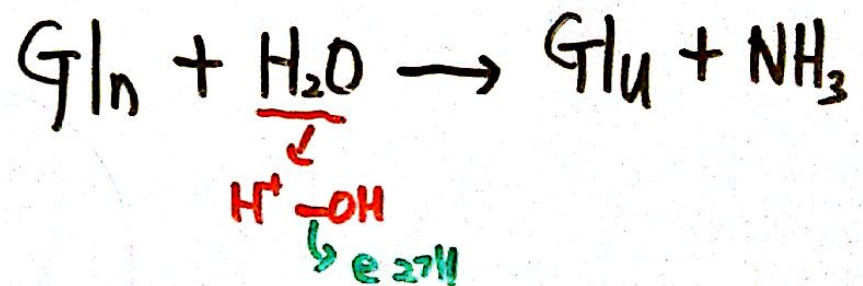 Gln + H₂O → Glu + NH₃
H⁺ -OH
e 2개